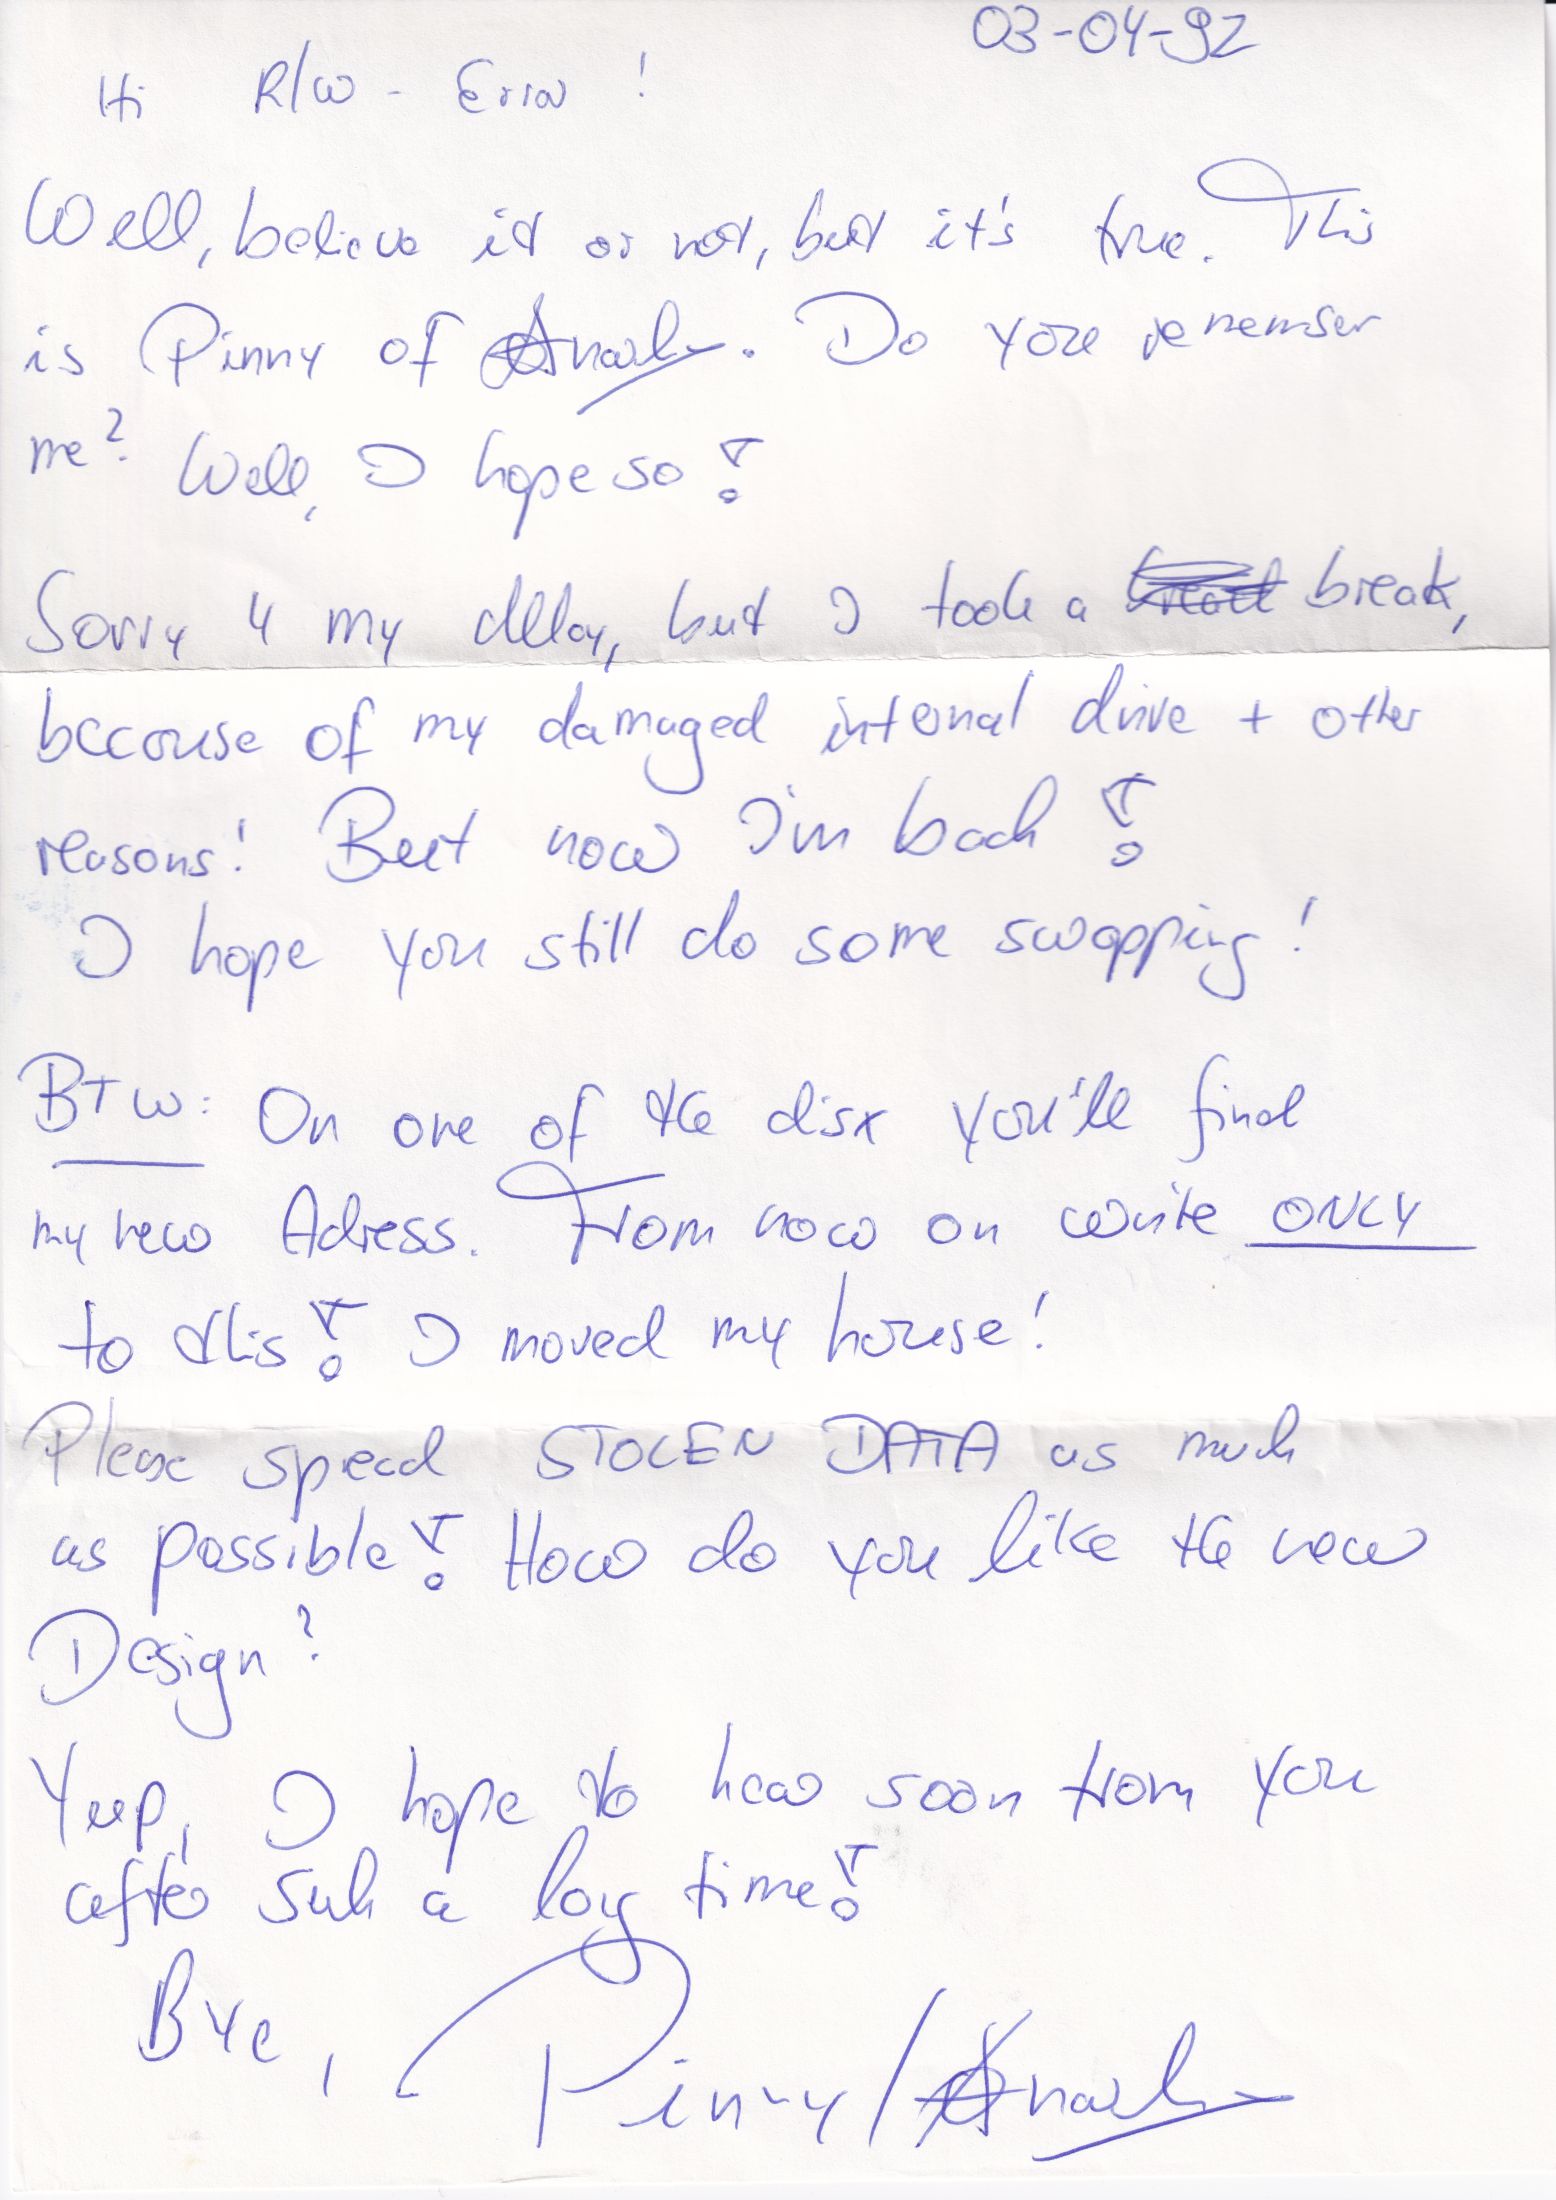 03-04-92
Hi R/W - Error !
Well, believe it or not, but it's true. This
is Pinny of Anarchy. Do you remember
me? Well, I hope so!
Sorry 4 my delay, but I took a break,
because of my damaged internal drive + other
reasons! But now I'm back!
I hope you still do some swapping!
BTW: On one of the disx you'll find
my new Adress. From now on write ONLY
to this! I moved my house!
Please spread STOLEN DATA as much
as possible! How do you like the new
Design?
Yup, I hope to hear soon from you
after such a long time!
Bye, Pinny/Anarchy